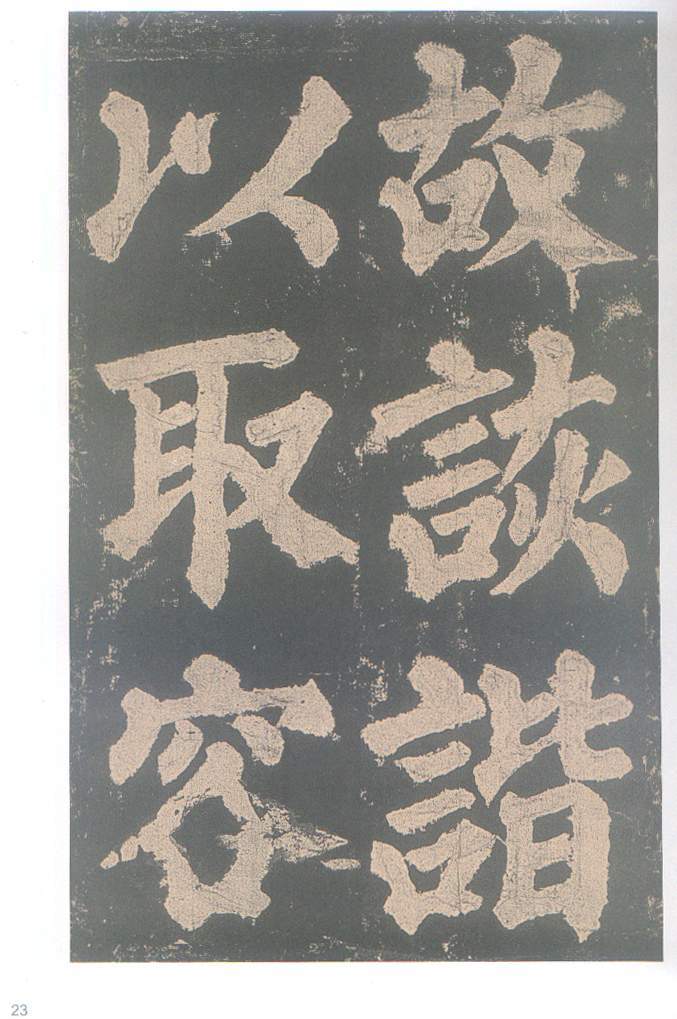 故詼諧
以取容
23